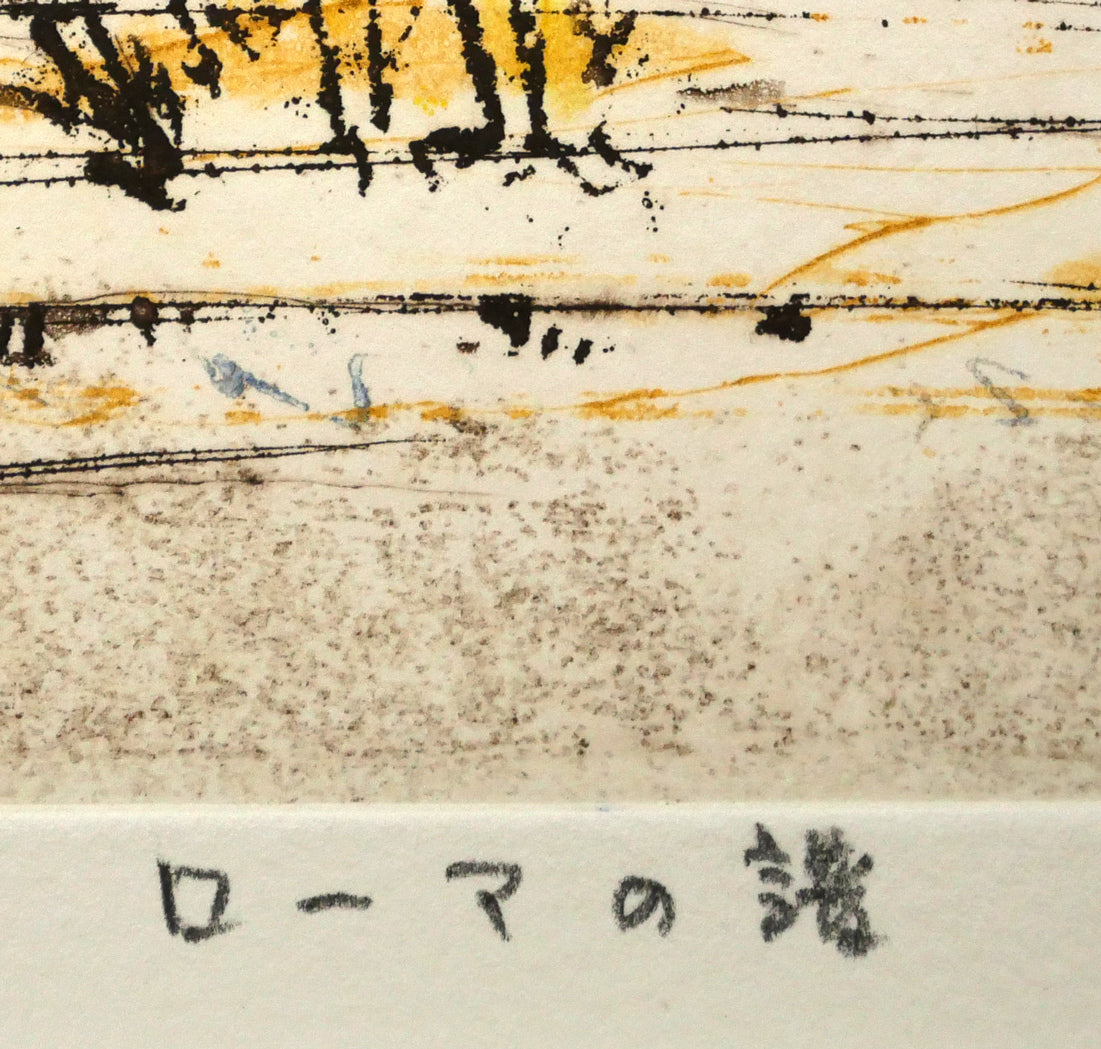 ローマの